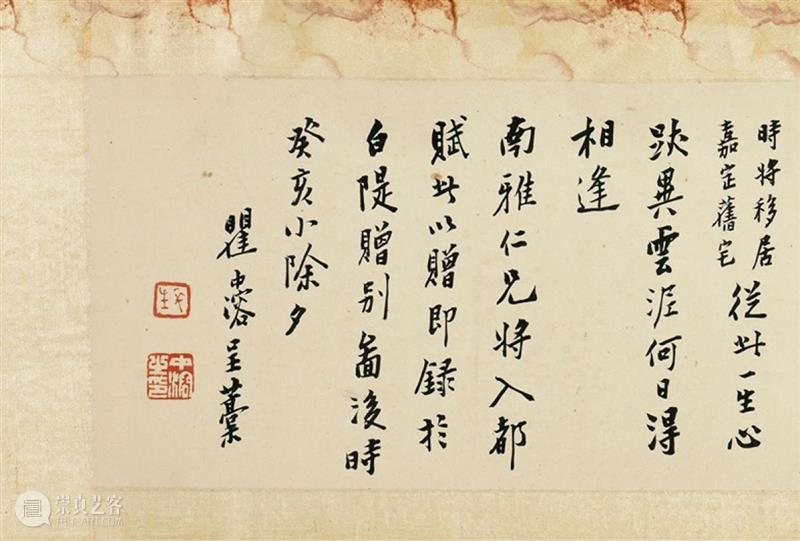 時將移居
嘉定舊宅
從此一生心
跡異雲泥何日得
相逢
南雅仁兄將入都
賦此以贈即錄於
白隄贈別圖後時
癸亥小除夕
瞿中溶呈藁
中溶之印
崇真艺客